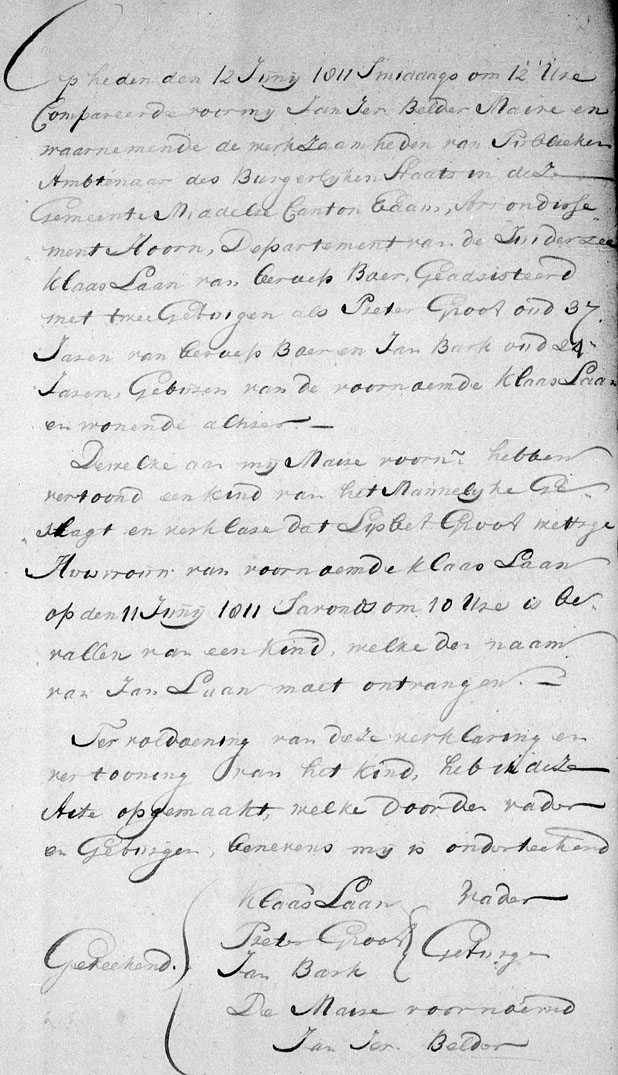 Op heden den 12 Junij 1811 Smiddags om 12 Ure
Compareerde voor my Jan Jer. Belder Maire en
waarnemende de werkzaamheden van Publieken
Ambtenaar des Burgerlyken Staats in deze
Gemeente Middelie Canton Edam, Arrondisse
ment Hoorn, Departement van de Zuiderzee
Klaas Laan van beroep Boer, Geadsisteerd
met twee Geburgen als Pieter Groot oud 37
Jaren van beroep Boer en Jan Bark oud 24
Jaren, Geburen van de voornoemde Klaas Laan
en wonende alhier. —
Dewelke aan mij Maire voorn. hebben
vertoond een kind van het Mannelyke Ge-
slagt en verklare dat Lysbet Groot wettige
Huwvrouw van voornoemde Klaas Laan
op den 11 Junij 1811 Savonds om 10 Ure is be-
vallen van een kind, welke den naam
van Jan Laan moet ontvangen. —
Ter voldoening van deze verklaring en
vertooning van het kind, heb ik deze
Acte opgemaakt, welke door den vader
en Geburgen, benevens my is onderteekend
Klaas Laan Vader
Pieter Groot
Geteekend. Jan Bark Geburge
De Maire voornoemd
Jan Jer. Belder